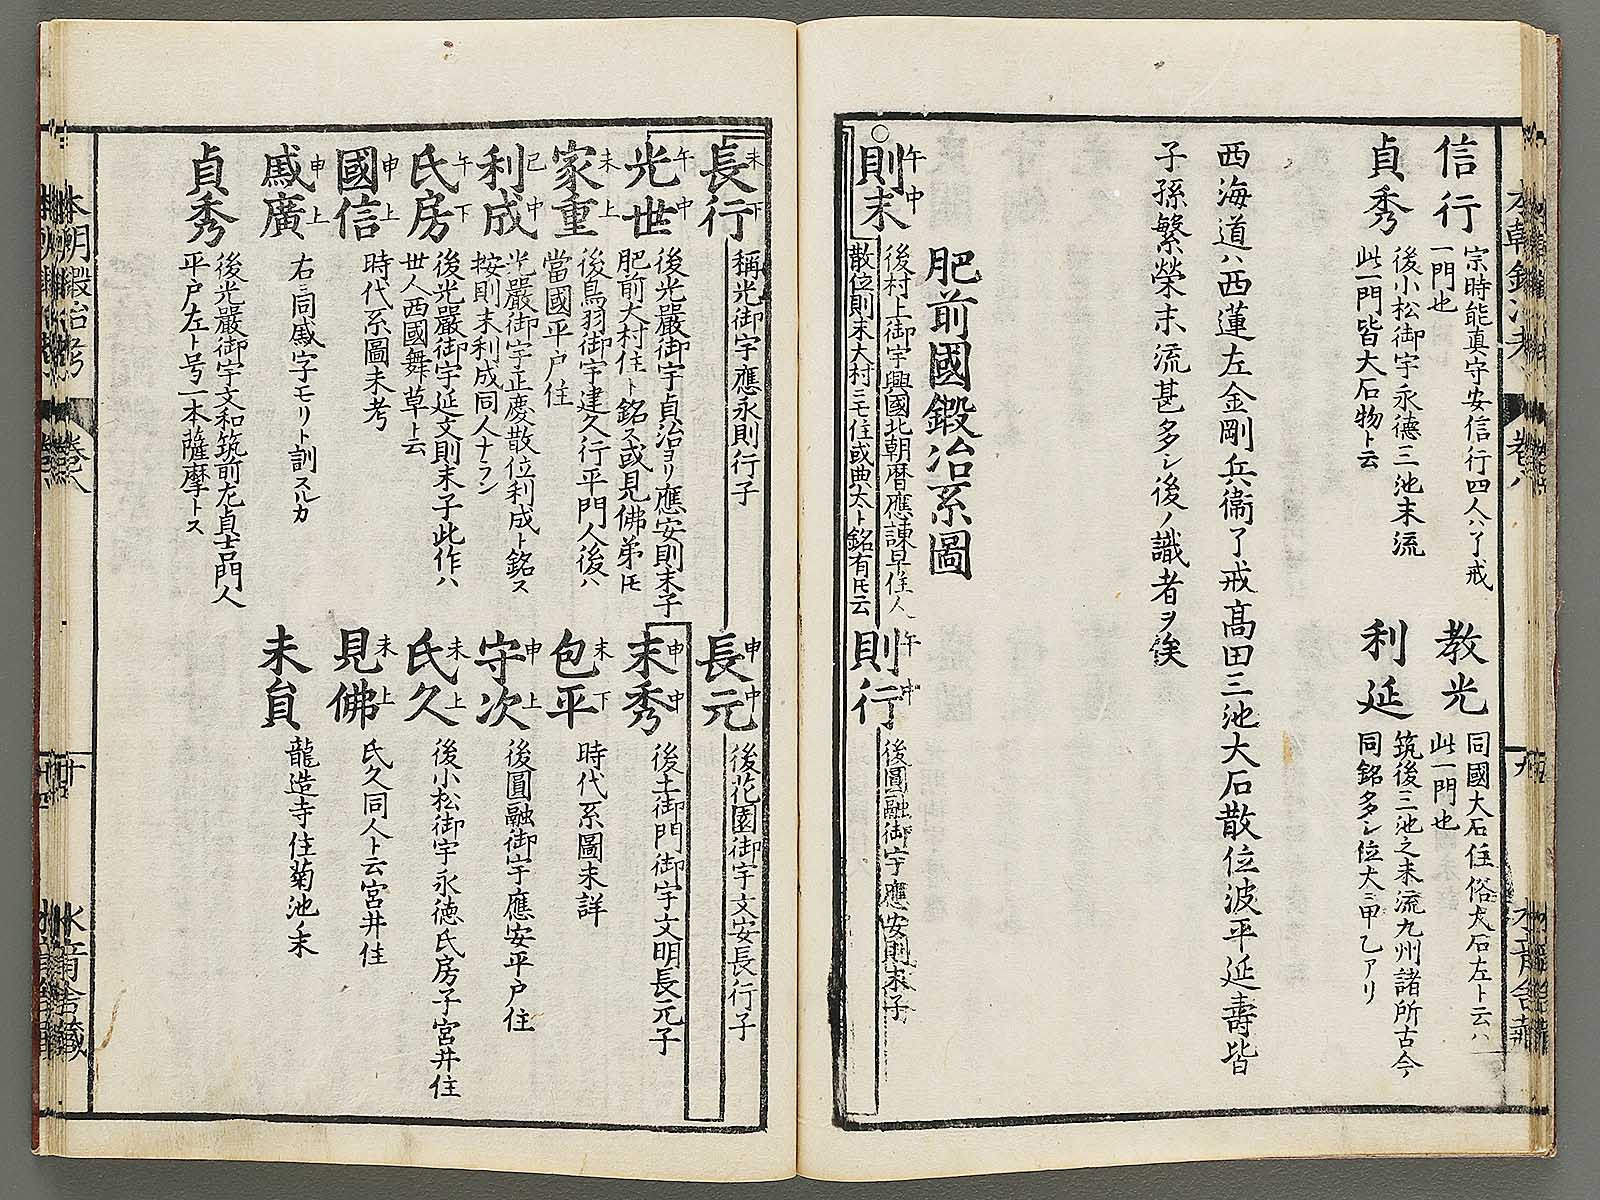 信行
宗時能真守安信行四人ハ了戒
一門也
教光
同國大石住俗大石左ト云ハ
此一門也
貞秀
後小松御宇永德三池末流
此一門皆大石物ト云
利延
筑後三池之末流九州諸所古今
同銘多シ位大ニ甲乙アリ
西海道ハ西蓮左金剛兵衞了戒高田三池大石散位波平延壽皆
子孫繁榮末流甚多シ後ノ識者ヲ俟
肥前國鍛冶系圖
則末
午中
後村上御宇興國北朝暦應諫早住人
散位則末大村ニモ住或典太ト銘有ト云
則行
午中
後圓融御宇應安則末子
本朝鍛冶考
卷八
長行
未下
稱光御宇應永則行子
長元
申中
後花園御宇文安長行子
光世
午中
後光嚴御宇貞治ヨリ應安則末子
肥前大村住ト銘ス或見佛弟トモ
末秀
申中
後土御門御宇文明長元子
家重
未上
後鳥羽御宇建久行平門人後ハ
當國平戸住
包平
未下
時代系圖未詳
利成
巳中
光嚴御宇正慶散位利成ト銘ス
按則末利成同人ナラン
守次
申上
後圓融御宇應安平戸住
氏房
午下
後光嚴御宇延文則末子此作ハ
世人西國舞草ト云
氏久
未上
後小松御宇永徳氏房子宮井住
國信
申上
時代系圖未考
見佛
未上
氏久同人ト云宮井住
戚廣
申上
右ニ同戚字モリト訓スルカ
末貟
龍造寺住菊池ノ末
貞秀
後光嚴御宇文和筑前左貞吉門人
平戸左ト号一本薩摩トス
本朝鍛冶考
卷八